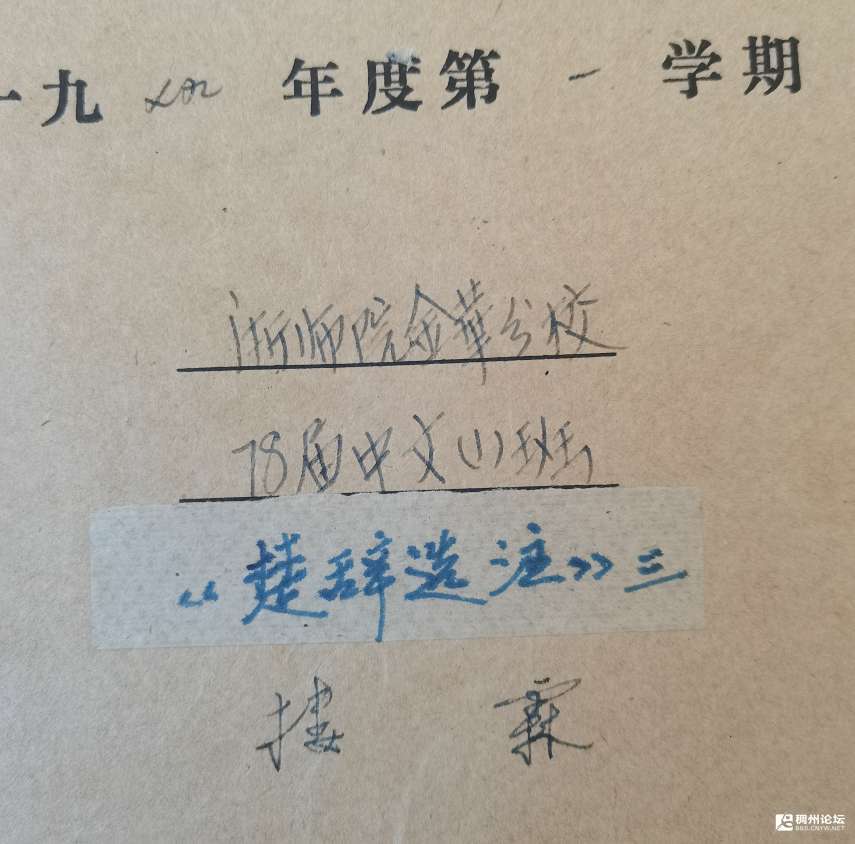 一九 年度第一学期
浙师院金华分校
78届中文(1)班
《楚辞选注》三
楼 霖
稠州论坛
BBS.CNYW.NET